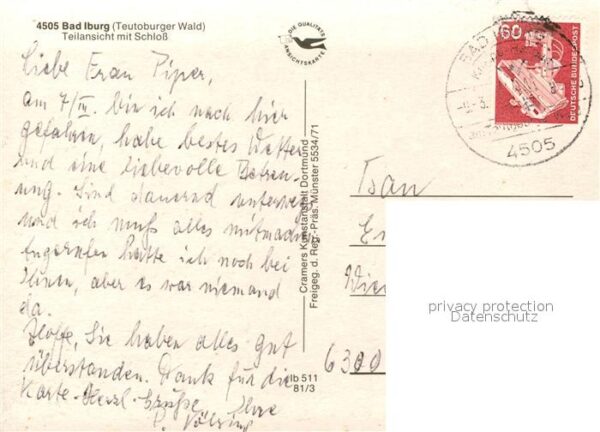 4505 Bad Iburg (Teutoburger Wald)
Teilansicht mit Schloß
DIE QUALITÄTS
ANSICHTSKARTE
Liebe Frau Piper,
am 7/III. bin ich nach hier
gefahren, habe bestes Wetter
und eine liebevolle Betreu-
ung. Sind dauernd unterwegs
und ich muß alles mitmachen
Angerufen hatte ich noch bei
Ihnen, aber es war niemand
da.
Hoffe, Sie haben alles gut
überstanden. Dank für die
Karte. Herzl. Grüße Ihre
Cramers Kunstanstalt Dortmund
Freigeg. d. Reg.-Präs. Münster 5534/71
Ib 511
81/3
60
DEUTSCHE BUNDESPOST
BAD
4505
6300
privacy protection
Datenschutz